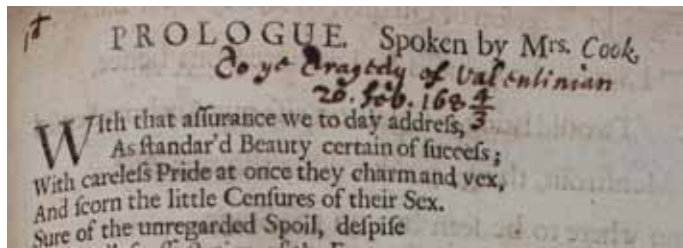 1t
PROLOGUE. Spoken by Mrs. Cook,
To ye Tragedy of Valentinian
20. Feb. 168 4/3
With that aſſurance we to day addreſs,
As ſtandar'd Beauty certain of ſucceſs;
With careleſs Pride at once they charm and vex,
And ſcorn the little Cenſures of their Sex.
Sure of the unregarded Spoil, deſpiſe